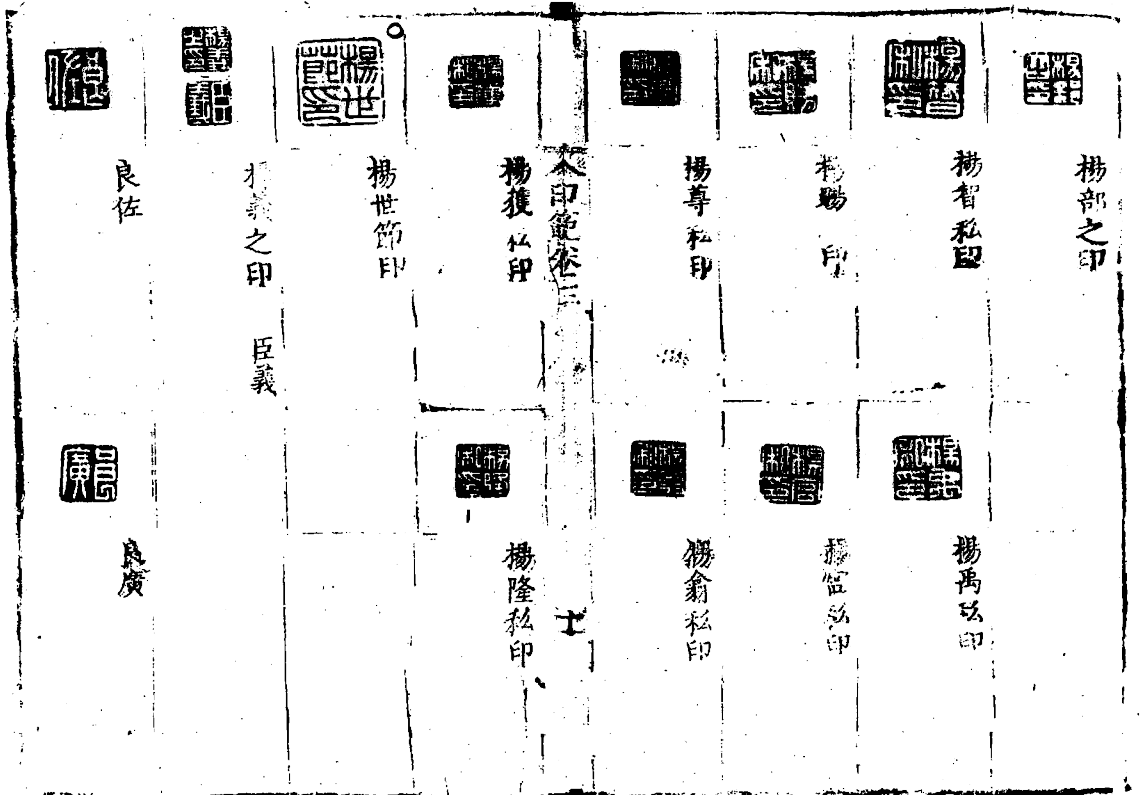 楊部之印
楊智私印
楊禹私印
楊賜 印
楊宮私印
楊尊私印
楊翕私印
印範卷三
十
楊獲私印
楊隆私印
楊世節印
義之印 臣義
良佐
良廣